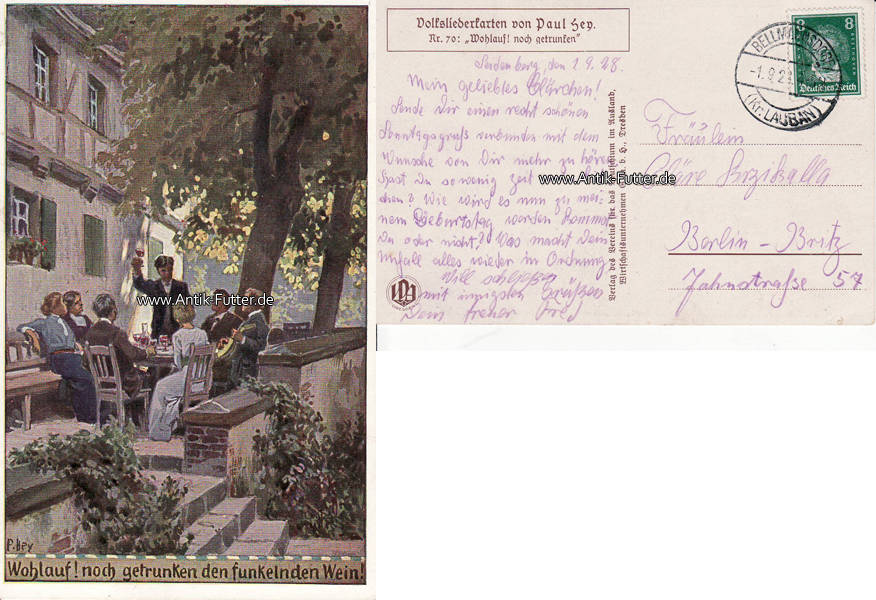 www.Antik-Futter.de
P. Hey
Wohlauf! noch getrunken den funkelnden Wein!
Volksliederkarten von Paul Hey.
Nr. 70: „Wohlauf! noch getrunken"
Seidenberg, den 1.9.28.
Mein geliebtes Clärchen!
Sende Dir einen recht schönen
Sonntagsgruß verbunden mit dem
Wunsche von Dir mehr zu hören
Hast Du so wenig Zeit
chen? Wie wird es nun zu mei-
nem Geburtstag werden kommst
Du oder nicht? Was macht Dein
Unfall alles wieder in Ordnung
Will schließen
mit innigsten Grüßen
Dein treuer
Verlag des Vereins für das Deutschtum im Ausland,
Wirtschaftsunternehmen G. m. b. H., Dresden
8 8
Deutsches Reich
BELLMANNSDORF
-1.9.28
(Kr. LAUBAN)
Fräulein
Cläre
www.Antik-Futter.de
Berlin-Britz
Jahnstraße 57